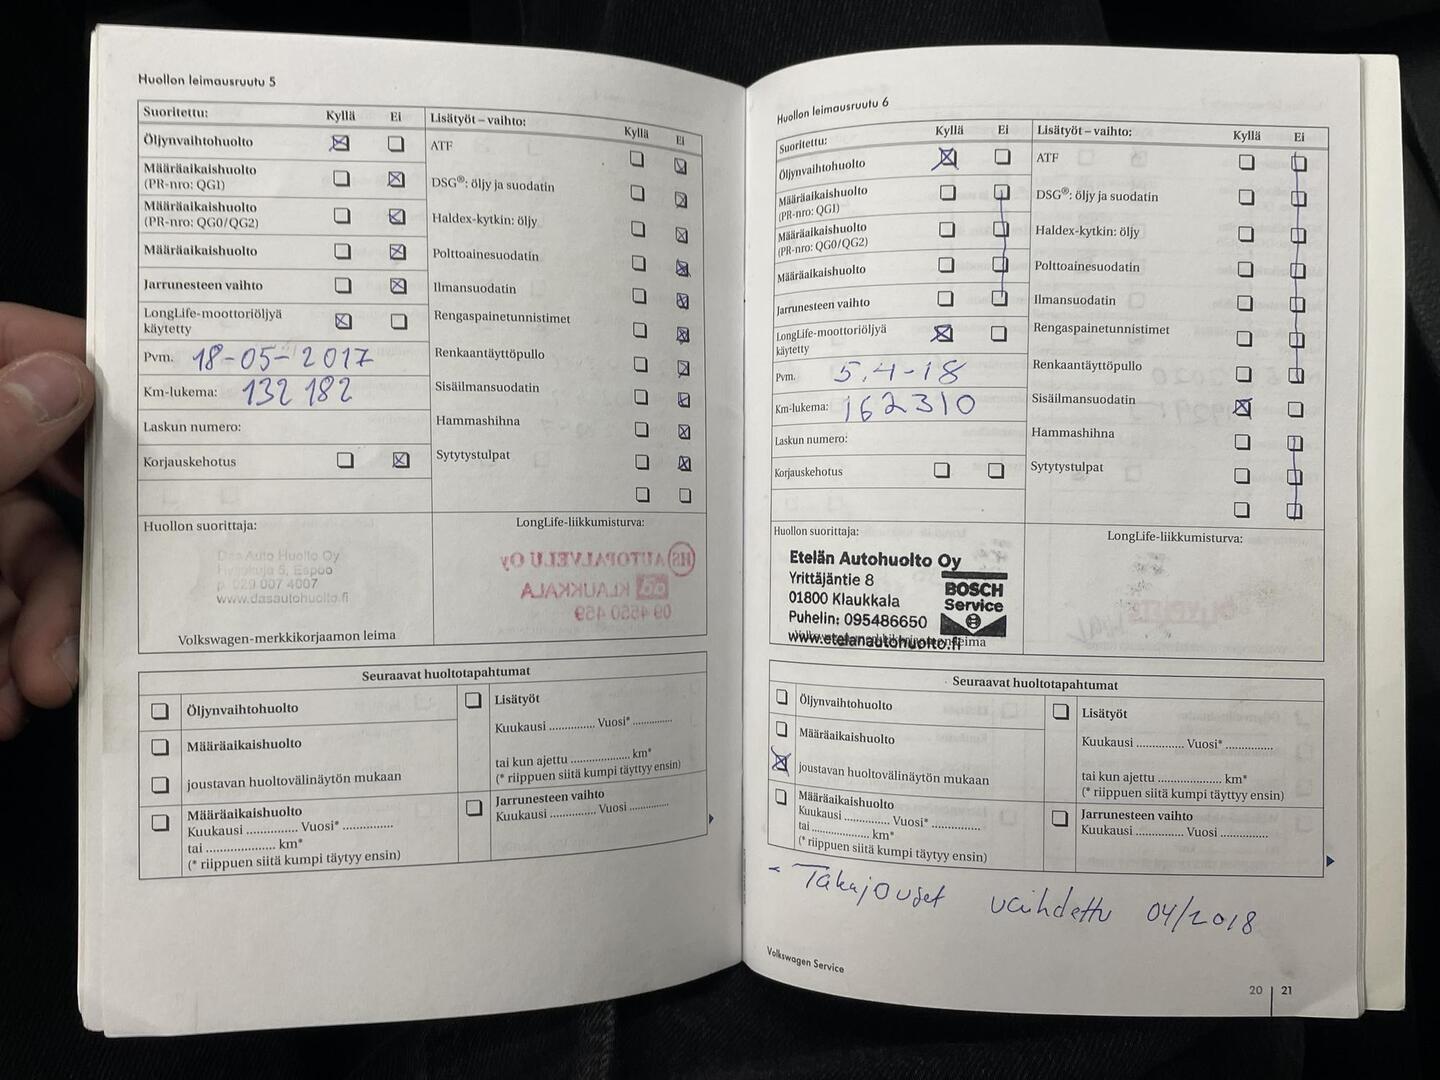 Huollon leimausruutu 5
Suoritettu: Kyllä Ei
Öljynvaihtohuolto
Määräaikaishuolto
(PR-nro: QG1)
Määräaikaishuolto
(PR-nro: QG0/QG2)
Määräaikaishuolto
Jarrunesteen vaihto
LongLife-moottoriöljyä
käytetty
Pvm. 18-05-2017
Km-lukema: 132 182
Laskun numero:
Korjauskehotus
Huollon suorittaja:
Das Auto Huolto Oy
Espoo
p. 029 007 4007
www.dasautohuolto.fi
Volkswagen-merkkikorjaamon leima
Lisätyöt – vaihto: Kyllä Ei
ATF
DSG®: öljy ja suodatin
Haldex-kytkin: öljy
Polttoainesuodatin
Ilmansuodatin
Rengaspainetunnistimet
Renkaantäyttöpullo
Sisäilmansuodatin
Hammashihna
Sytytystulpat
LongLife-liikkumisturva:
HS AUTOPALVELU OY
KLAUKKALA
09 4550 459
Seuraavat huoltotapahtumat
Öljynvaihtohuolto
Määräaikaishuolto
joustavan huoltovälinäytön mukaan
Määräaikaishuolto
Kuukausi ............... Vuosi* ...............
tai .................... km*
(* riippuen siitä kumpi täytyy ensin)
Lisätyöt
Kuukausi ............. Vuosi* .............
tai kun ajettu .................. km*
(* riippuen siitä kumpi täytyy ensin)
Jarrunesteen vaihto
Kuukausi ............. Vuosi .............
Huollon leimausruutu 6
Suoritettu: Kyllä Ei
Öljynvaihtohuolto
Määräaikaishuolto
(PR-nro: QG1)
Määräaikaishuolto
(PR-nro: QG0/QG2)
Määräaikaishuolto
Jarrunesteen vaihto
LongLife-moottoriöljyä
käytetty
Pvm. 5.4-18
Km-lukema: 162310
Laskun numero:
Korjauskehotus
Huollon suorittaja:
Etelän Autohuolto Oy
Yrittäjäntie 8
01800 Klaukkala
Puhelin: 095486650
www.etelanautohuolto.fi
BOSCH
Service
Lisätyöt – vaihto: Kyllä Ei
ATF
DSG®: öljy ja suodatin
Haldex-kytkin: öljy
Polttoainesuodatin
Ilmansuodatin
Rengaspainetunnistimet
Renkaantäyttöpullo
Sisäilmansuodatin
Hammashihna
Sytytystulpat
LongLife-liikkumisturva:
Seuraavat huoltotapahtumat
Öljynvaihtohuolto
Määräaikaishuolto
joustavan huoltovälinäytön mukaan
Määräaikaishuolto
Kuukausi ............. Vuosi* .............
tai ................ km*
(* riippuen siitä kumpi täytyy ensin)
Lisätyöt
Kuukausi .............. Vuosi* ..............
tai kun ajettu ................... km*
(* riippuen siitä kumpi täytyy ensin)
Jarrunesteen vaihto
Kuukausi .............. Vuosi ..............
- Takajouset vaihdettu 04/2018
Volkswagen Service
20 21